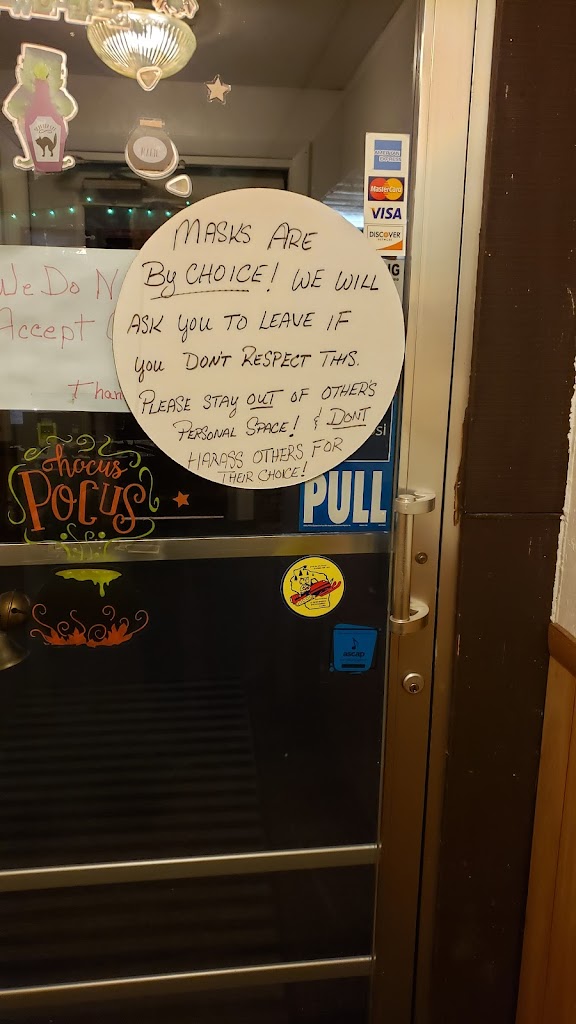 AMERICAN EXPRESS
MasterCard
VISA
DISCOVER
NG
MASKS ARE
BY CHOICE! WE WILL
ASK YOU TO LEAVE IF
YOU DON'T RESPECT THIS.
PLEASE STAY OUT OF OTHER'S
PERSONAL SPACE! & DONT
HARASS OTHERS FOR
THEIR CHOICE!
We Do N
Accept
Than
si
hocus
POCUS
PULL
ascap